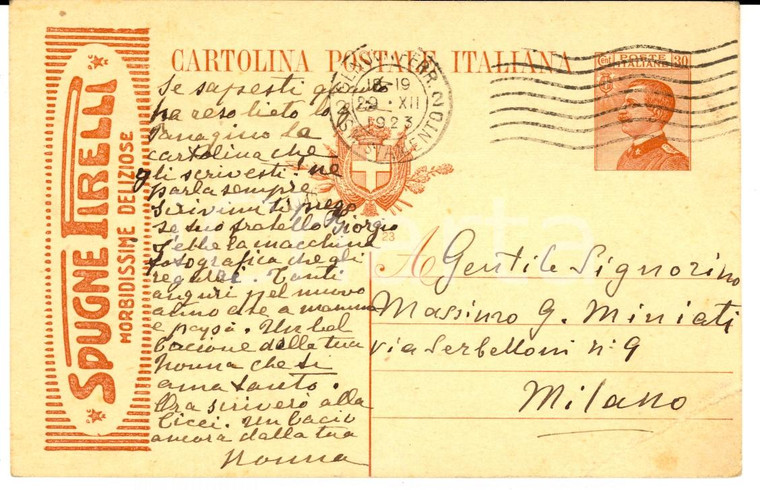 SPUGNE PIRELLI
MORBIDISSIME DELIZIOSE
CARTOLINA POSTALE ITALIANA
POSTE ITALIANE 30
18-19
29 XII
1923
23
Se sapesti quanto
ha reso lieto lo
la
cartolina che
gli scrivesti. ne
parla sempre
Scrivimi ti prego
se suo fratello Giorgio
l'ebbe la macchina
fotografica che gli
regalai. Tanti
auguri pel nuovo
anno che a mamma
e papà. Un bel
bacione dalla tua
Nonna che ti
ama tanto.
Ora scriverò alla
Cicci. Un bacio
ancora dalla tua
Nonna
A Gentile Signorino
Massimo G. Miniati
via Serbelloni n° 9
Milano